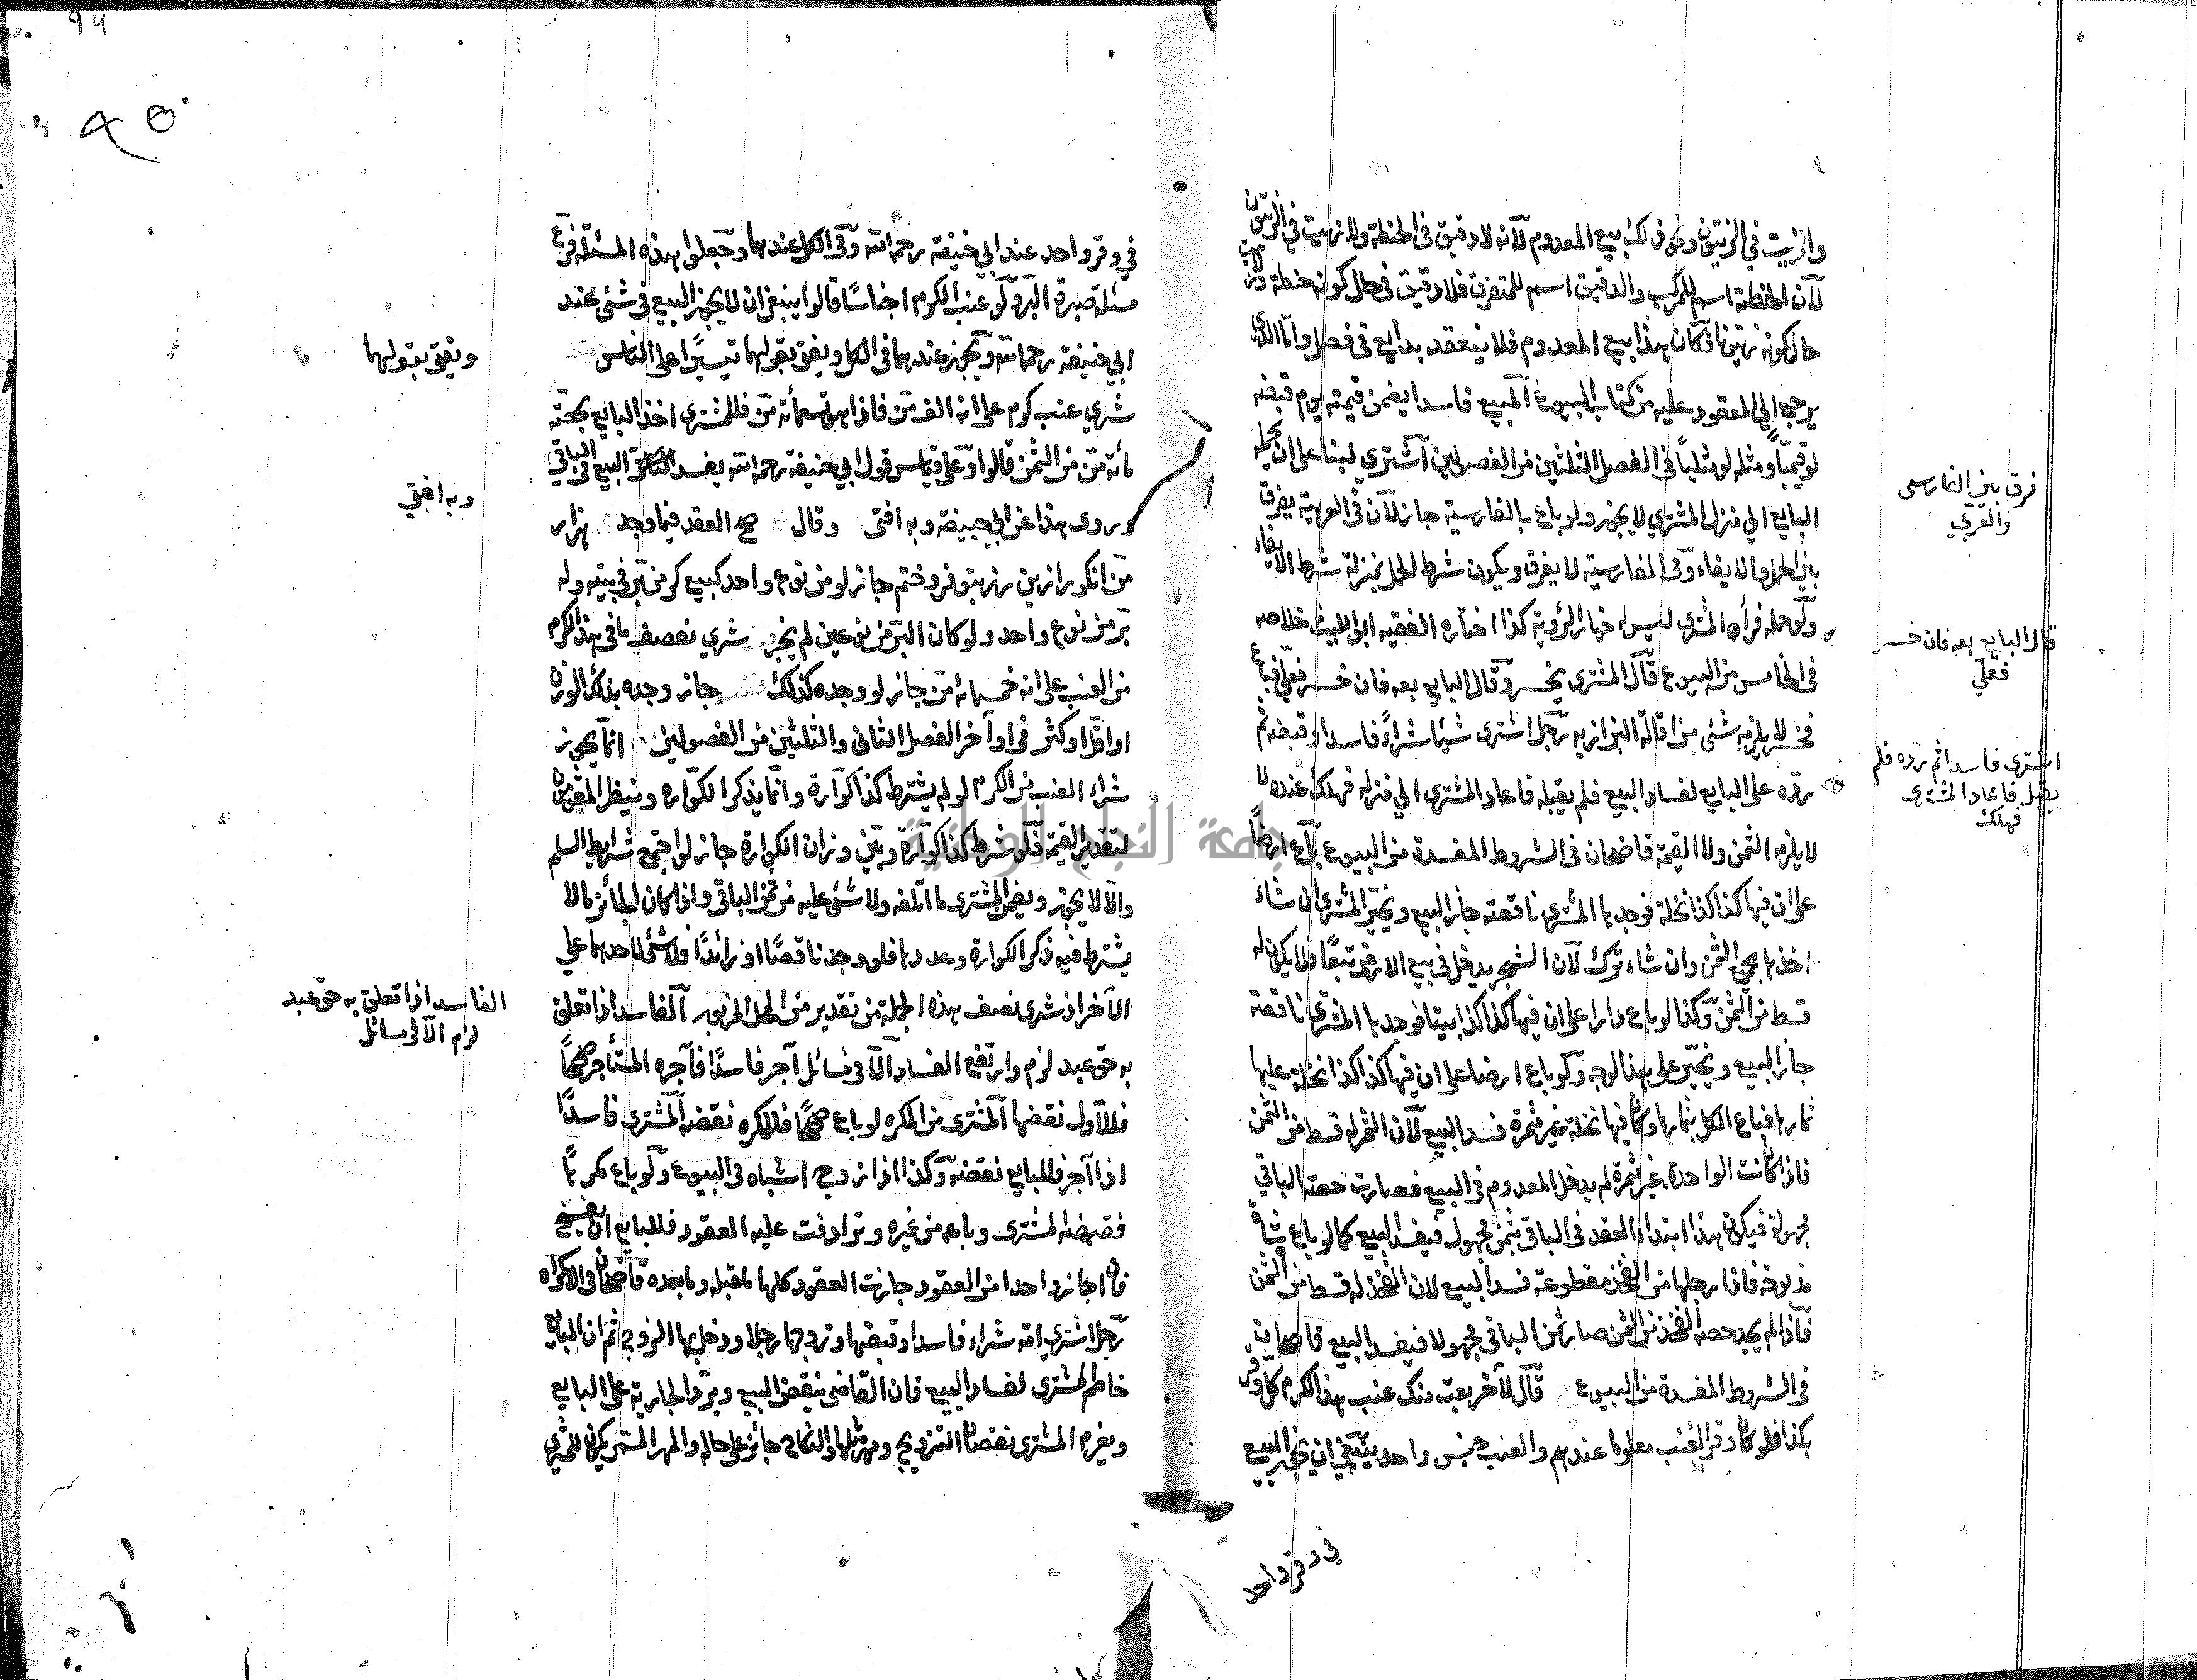 والزيت في الزيتون وفي ذلك بيع المعدوم لانه لا دقيق في الحنطة ولا زيت في الزيتون
لان الحنطة اسم للمركب والدقيق اسم للمتفرق فلا دقيق في حال كونه حنطة ولا زيت
حال كونه زيتونا فكان هذا بيع المعدوم فلا ينعقد بدايع في فصل واما الذي
يرجع الي المعقود عليه من كتاب البيوع المبيع فاسدا يضمن قيمته يوم قبضه
لو قيميا ومثله لو مثليا في الفصل الثلثين من الفصولين اشترى لبنا على ان يحمله
البايع الي منزل المشتري لا يجوز ولو باع بالفارسية جاز لان في العربية يفرق
بين الحمل والايفاء وفي الفارسية لا يفرق ويكون شرط الحمل بمنزلة شرط الايفاء
ولو حمله فرأه المشتري ليس له خيار الرؤية كذا اختاره الفقيه ابو الليث خلاصه
في الخامس من البيوع قال المشتري يخسر وقال البايع بعه فان خسر فعليّ فباع
فخسر لا يلزمه شئ من اقالة البزازيه رجل اشترى شيئا شراءً فاسدا وقبضه ثم
رده على البايع لفساد البيع فلم يقبله فاعاد المشتري الي منزله فهلك عنده لا
لا يلزمه الثمن ولا القيمة قاضيخان في الشروط المفسدة من البيوع باع ارضاً
على ان فيها كذا كذا نخلة فوجدها المشتري ناقصة جاز البيع ويخير المشتري ان شاء
اخذها بجميع الثمن وان شاء ترك لان الشجر يدخل في بيع الارض تبعًا ولا يكون له
قسط من الثمن وكذا لو باع دارا على ان فيها كذا كذا بيتا فوجدها المشتري ناقصة
جاز البيع ويخيّر على هذا الوجه ولو باع ارضا على ان فيها كذا كذا نخلة عليها
ثمارها فباع الكل بثمارها وكان فيها نخلة غير مثمرة فسد البيع لان الثمر له قسط من الثمن
فاذا كانت الواحدة غير مثمرة لم يدخل المعدوم في البيع فصارت حصة الباقي
مجهولة فيكون هذا ابتداء العقد في الباقي بثمن مجهول فيفسد البيع كما لو باع شاة
مذبوحة فاذا رجلها من الفخذ مقطوعة فسد البيع لان الفخذ له قسط من الثمن
فاذا لم يجد حصة الفخذ من الثمن صار ثمن الباقي مجهولا فيفسد البيع قاضيخان
في الشروط المفسدة من البيوع قال لآخر بعت منك عنب هذا الكرم كل وقر
بكذا فلو كان وقر العنب معلوما عندهم والعنب جنس واحد ينبغي ان يجوز البيع
في وقر واحد
فرق بين الفارسي
والعربي
قال البايع بعه فان خسر
فعليّ
اشترى فاسدا ثم رده فلم
يقبل فاعاد المشتري
فهلك
في وقر واحد عند ابي حنيفة رحمه الله وفي الكل عندهما وجعلوا هذه المسئلة فرع
مسئلة صبرة البر ولو عنب الكرم اجناسًا قالوا ينبغي ان لا يجوز البيع في شئ عند
ابي حنيفة رحمه الله ويجوز عندهما في الكل ويفتى بقولهما تيسيرًا على الناس
شري عنب كرم على انه الف من فاذا هو تسعمأة من فللمشتري اخذ البايع بحصة
مأة من من الثمن قالوا وعلى قياس قول ابي حنيفة رحمه الله يفسد البيع في الباقي
وروى هذا عن ابي حنيفة وبه افتى وقال صح العقد فيما وجد هزار
من انكور از ين رز بتو فروختم جاز لو من نوع واحد كبيع كر من بر في بيته وله
بر من نوع واحد ولو كان البر من نوعين لم يجز شري نصف ما في هذا الكرم
من العنب على انه خمسمائة من جاز لو وجده كذلك جاز وجده بذلك الوزن
او اقل او اكثر في اوآخر الفصل الثاني والثلثين من الفصولين انما يجوز
شراء العنب من الكرم لو لم يشترط كذا كوارة وانما يذكر الكواره وينظر المقومون
لتقدير القيمة فلو شرط كذا كوارة وبين وزان الكوارة جاز لو اجتمع شرايط السلم
والا لا يجوز ويضمن المشتري ما اتلفه ولا شئ عليه من ثمن الباقي واذا كان الجائز ما لا
يشترط فيه ذكر الكوارة وعددها فلو وجد ناقصًا او زائدًا فلا شئ لاحدهما علي
الآخر اذ شرى نصف هذه الجملة من تقدير من المحل المزبور الفاسد اذا تعلق
به حق عبد لزم وارتفع الفساد الا في مسائل آجر فاسدًا فآجره المستأجر صحيحًا
فللاول نقضها المشتري من المكره لو باع صحيحًا فللمكره نقضه المشتري فاسدًا
اذا آجر فللبايع نقضه وكذا اذا زوج اشباه في البيوع ولو باع مكرهًا
فقبضه المشتري وباعه من غيره وترادفت عليه العقود فللبايع ان يفسخ
فان اجاز واحدا من العقود جازت العقود كلها ما قبله وما بعده قاضيخان في الاكراه
رجل اشتري امة شراء فاسدا وقبضها وزوجها رجلا ودخل بها الزوج ثم ان البايع
خاصم المشتري لفساد البيع فان القاضي ينقض البيع ويرد الجارية على البايع
ويغرم المشتري نقصان التزويج ومهر مثلها والنكاح جائز على حاله والمهر المسمى يكون للمشتري
ويفتى بقولهما
وبه افتى
الفاسد اذا تعلق به حق عبد
لزم الا في مسائل
٩٥
جامعة النجاح الوطنية